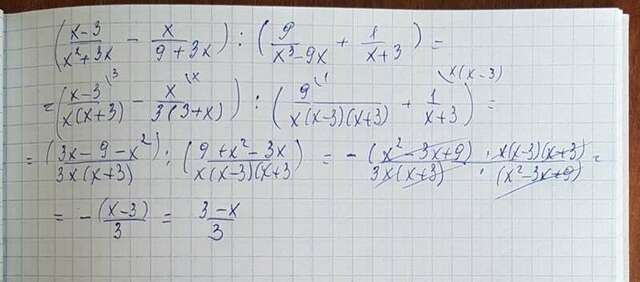 (x-3/x²+3x - x/9+3x) : (9/x³-9x + 1/x+3) =
= (x-3\3/x(x+3) - x\x/3(3+x)) : (9\1/x(x-3)(x+3) + 1\x(x-3)/x+3) =
= (3x-9-x²)/3x(x+3) : (9+x²-3x)/x(x-3)(x+3 = -(x²-3x+9)/3x(x+3) · x(x-3)(x+3)/(x²-3x+9) =
= -(x-3)/3 = 3-x/3